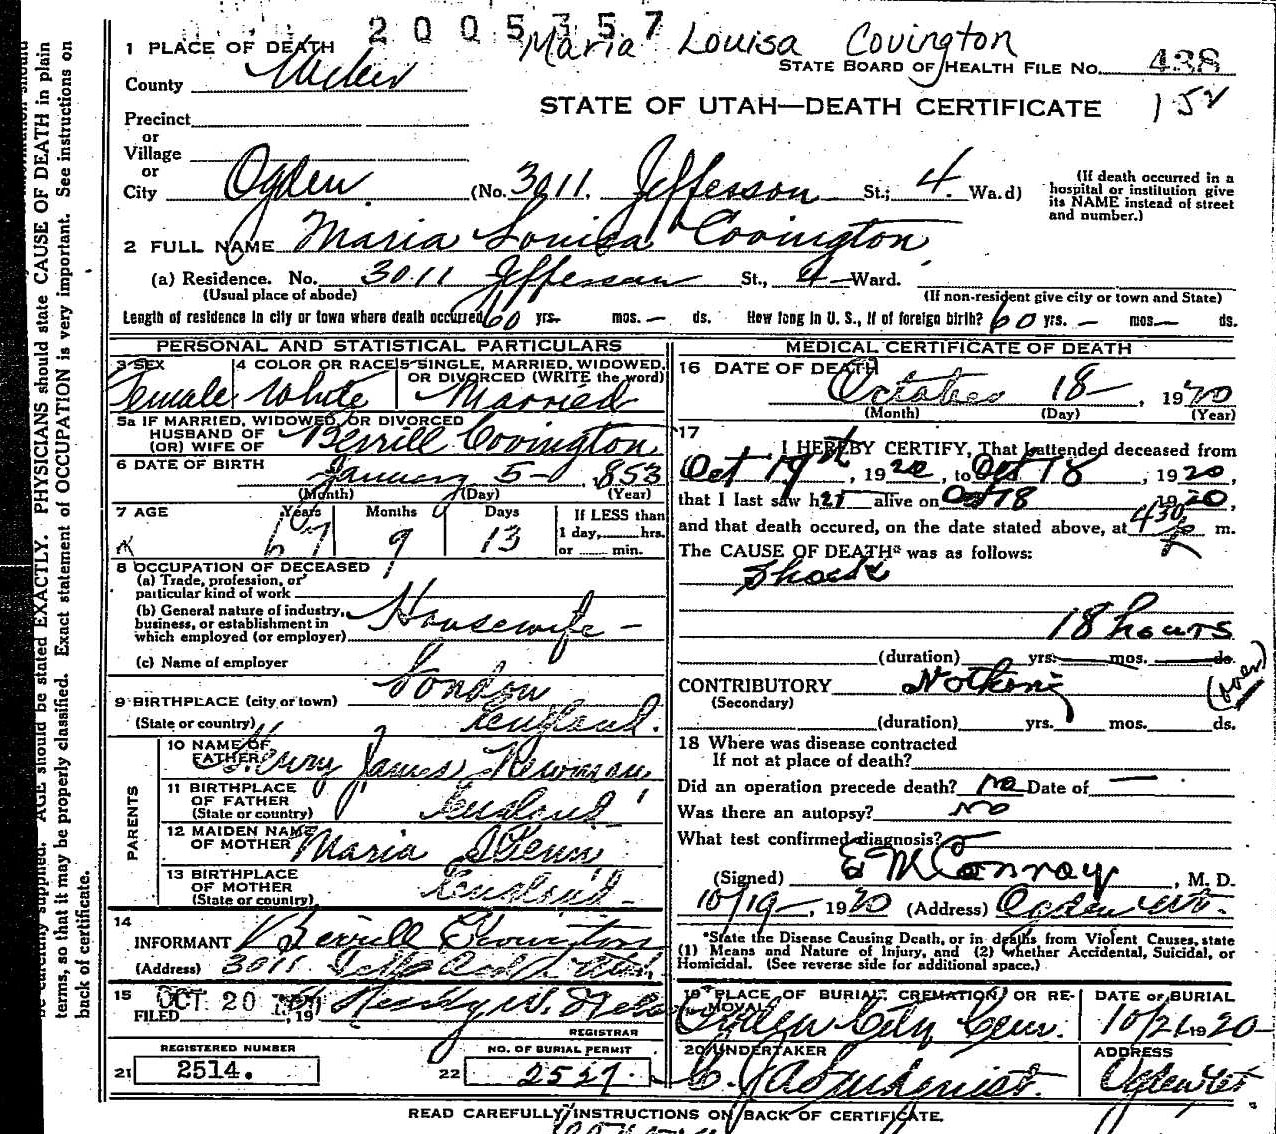 2005357
Maria Louisa Covington
1 PLACE OF DEATH
STATE BOARD OF HEALTH FILE No. 438
County Weber
STATE OF UTAH—DEATH CERTIFICATE
152
Precinct
or
Village
or
City Ogden (No. 3011. Jefferson St.; 4. Ward)
(If death occurred in a
hospital or institution give
its NAME instead of street
and number.)
2 FULL NAME Maria Louisa Covington
(a) Residence. No. 3011 Jefferson St., 4 Ward.
(Usual place of abode) (If non-resident give city or town and State)
Length of residence in city or town where death occurred 60 yrs. mos. — ds. How long in U. S., if of foreign birth? 60 yrs. — mos. — ds.
PERSONAL AND STATISTICAL PARTICULARS
3 SEX Female
4 COLOR OR RACE White
5 SINGLE, MARRIED, WIDOWED,
OR DIVORCED (WRITE the word)
Married
5a IF MARRIED, WIDOWED, OR DIVORCED
HUSBAND OF
(OR) WIFE OF Berrill Covington
6 DATE OF BIRTH January 5 – 1853
(Month) (Day) (Year)
7 AGE Years Months Days If LESS than
1 day, hrs.
or min.
67 9 13
8 OCCUPATION OF DECEASED
(a) Trade, profession, or
particular kind of work
(b) General nature of industry,
business, or establishment in
which employed (or employer) Housewife –
(c) Name of employer
9 BIRTHPLACE (city or town) London
(State or country) England.
PARENTS
10 NAME OF
FATHER Henry James Newman
11 BIRTHPLACE
OF FATHER
(State or country) England
12 MAIDEN NAME
OF MOTHER Maria
13 BIRTHPLACE
OF MOTHER
(State or country) England
14
INFORMANT Berrill Covington
(Address) 3011 Utah
15
FILED OCT 20 1920, 19
REGISTRAR
REGISTERED NUMBER
21 2514.
NO. OF BURIAL PERMIT
22 2527.
MEDICAL CERTIFICATE OF DEATH
16 DATE OF DEATH October 18, 1920
(Month) (Day) (Year)
17
I HEREBY CERTIFY, That I attended deceased from
Oct 19th, 1920, to Oct 18, 1920,
that I last saw her alive on Oct 18 1920,
and that death occured, on the date stated above, at 430 p m.
The CAUSE OF DEATH* was as follows:
Shock
18 hours
(duration) yrs. mos. ds.
CONTRIBUTORY Nothing
(Secondary)
(over)
(duration) yrs. mos. ds.
18 Where was disease contracted
If not at place of death?
Did an operation precede death? No Date of —
Was there an autopsy? No
What test confirmed diagnosis?
(Signed) E M Conroy, M. D.
10/19, 1920 (Address) Ogden Ut.
*State the Disease Causing Death, or in deaths from Violent Causes, state
(1) Means and Nature of Injury, and (2) Whether Accidental, Suicidal, or
Homicidal. (See reverse side for additional space.)
19 PLACE OF BURIAL, CREMATION, OR RE-
MOVAL
Ogden City Cem.
DATE OF BURIAL
10/21 1920
20 UNDERTAKER
ADDRESS
Ogden Ut
READ CAREFULLY INSTRUCTIONS ON BACK OF CERTIFICATE.
be carefully supplied. AGE should be stated EXACTLY. PHYSICIANS should state CAUSE OF DEATH in plain
terms, so that it may be properly classified. Exact statement of OCCUPATION is very important. See instructions on
back of certificate.